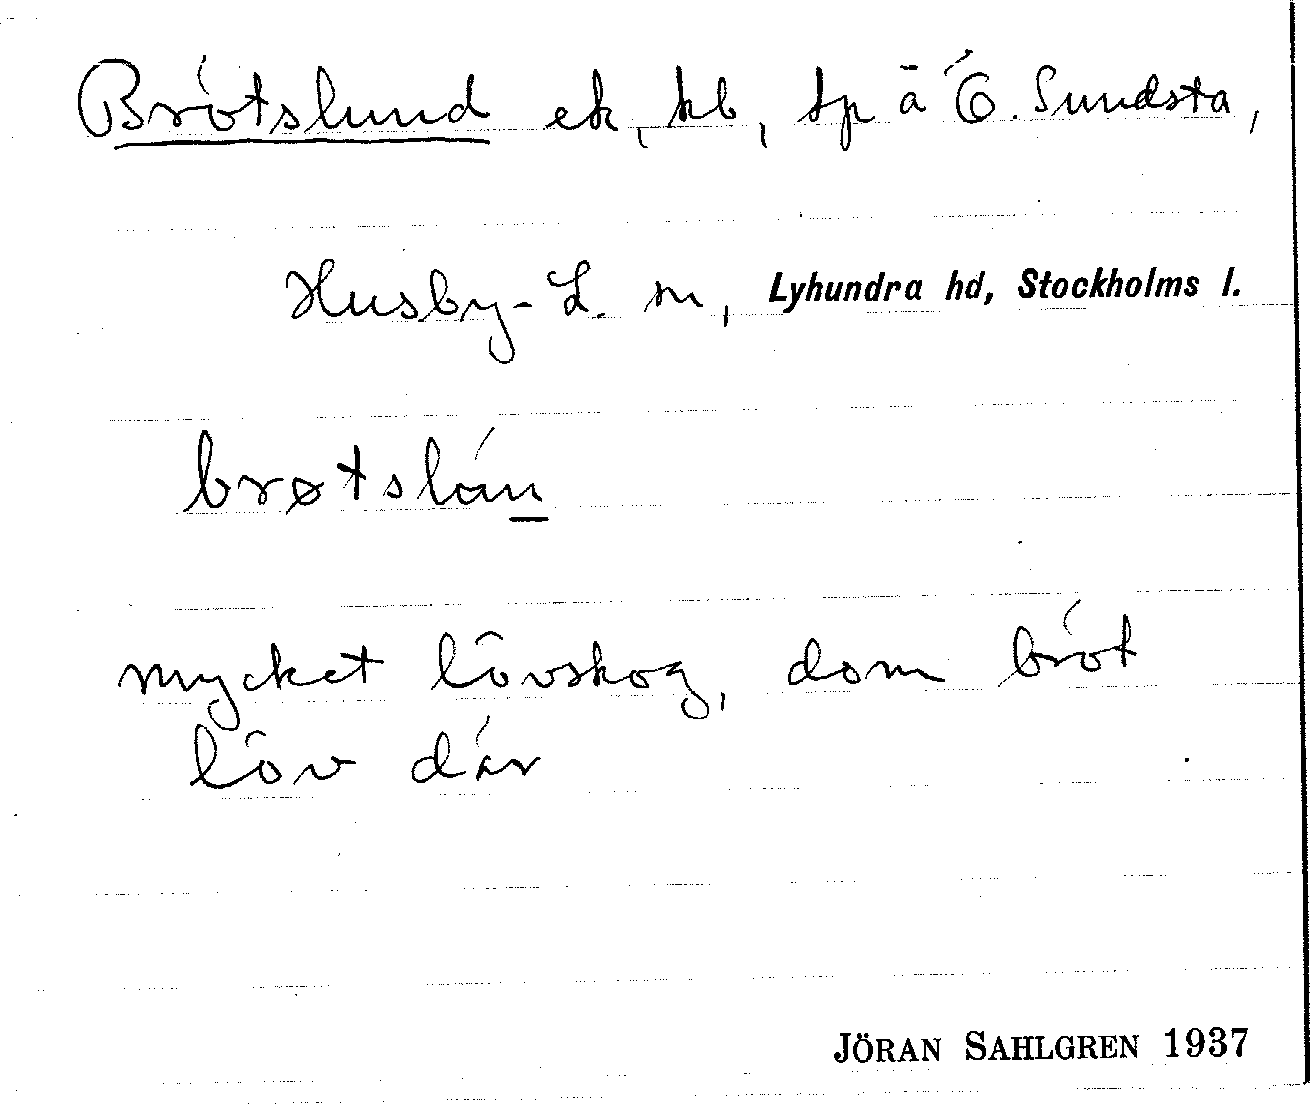 Brötslund ek, kb, tp å Ö. Sundsta,
Husby-L. sn, Lyhundra hd, Stockholms l.
brøtslán
mycket lövskog, dom bröt
löv där
JÖRAN SAHLGREN 1937